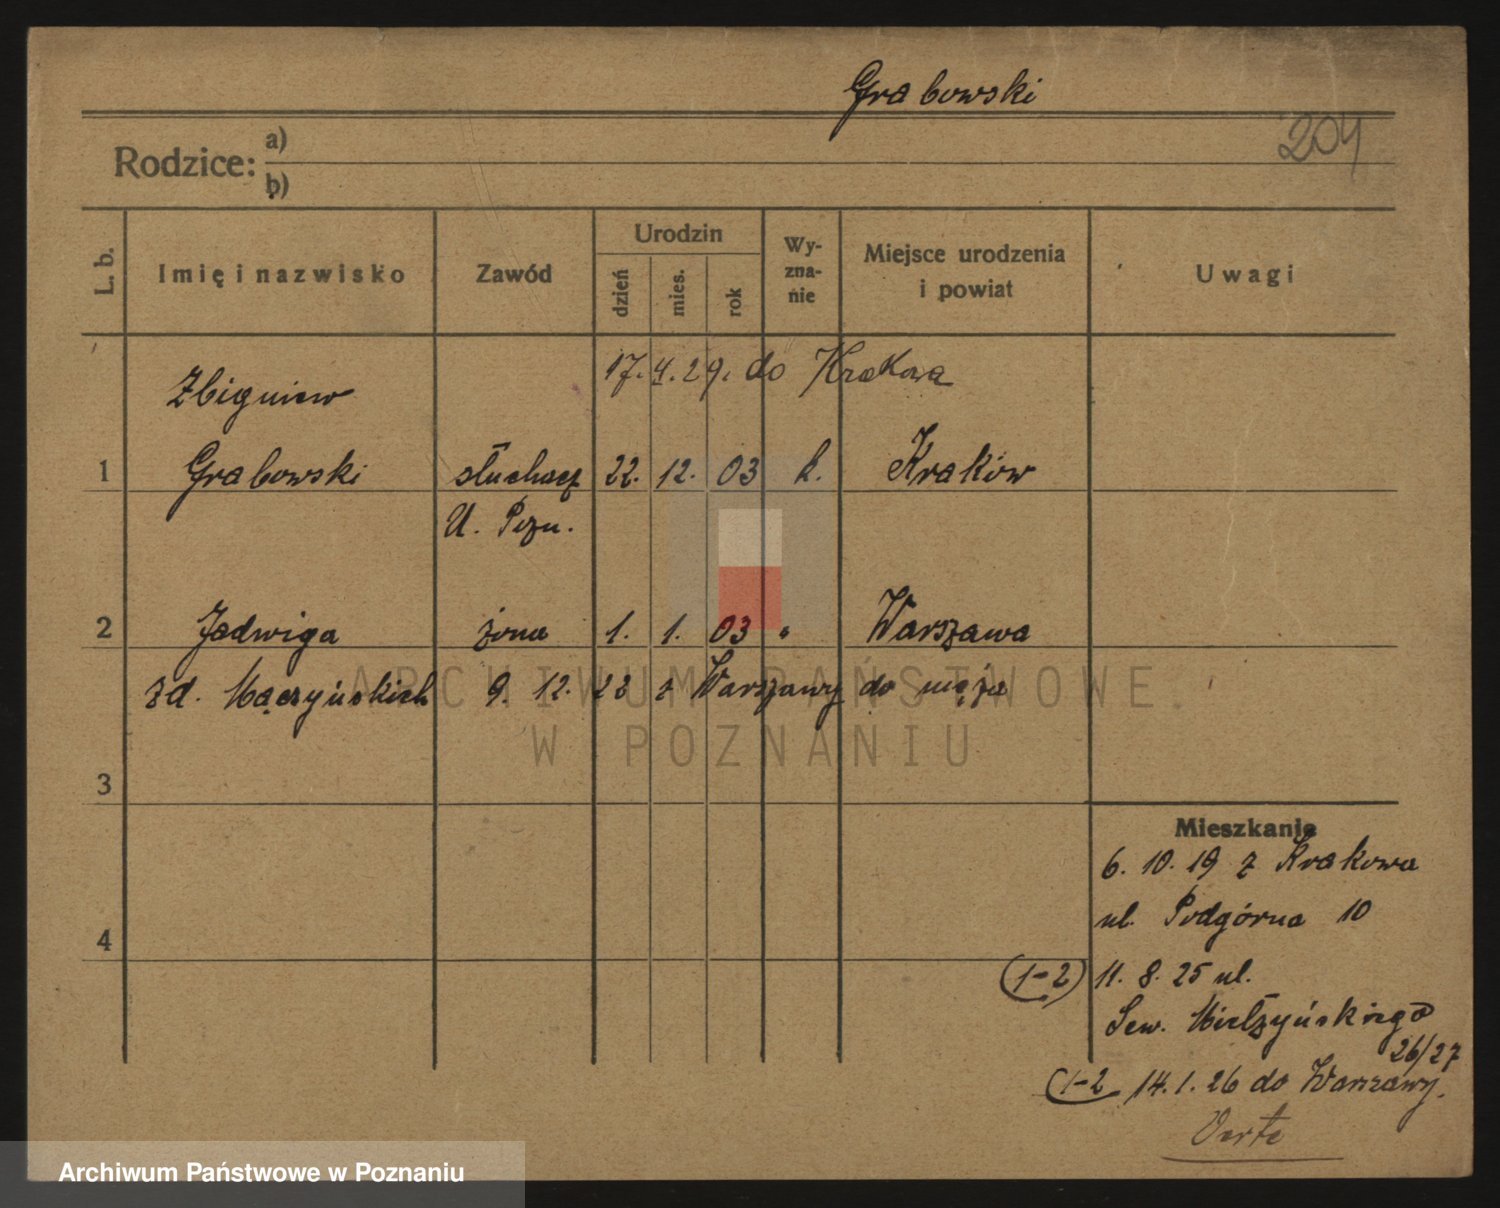 Grabowski
204
Rodzice: a)
b)
L. b.
Imię i nazwisko
Zawód
Urodzin
dzień
mies.
rok
Wy-
zna-
nie
Miejsce urodzenia
i powiat
Uwagi
17. 4. 29. do Krakowa
Zbigniew
1 Grabowski słuchacz 22. 12. 03 k. Kraków
U. Pozn.
2 Jadwiga żona 1. 1. 03 " Warszawa
zd. Mączyńskich 9. 12. 23 z Warszawy do męża
3
4
Mieszkanie
6. 10. 19 z Krakowa
ul. Podgórna 10
(1-2) 11. 8. 25 ul.
Sew. Mielżyńskiego
26/27
(1-2 14. 1. 26 do Warszawy.
Verte
ARCHIWUM PAŃSTWOWE
W POZNANIU
Archiwum Państwowe w Poznaniu